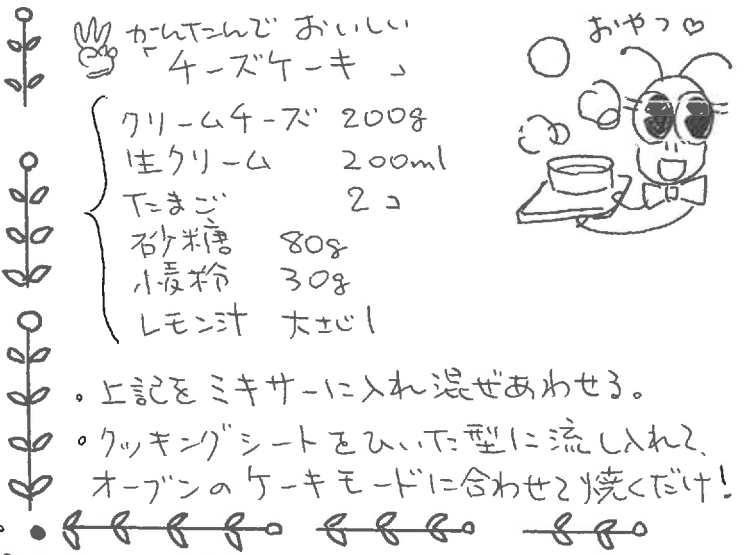 かんたんで おいしい
「チーズケーキ」
おやつ♡
クリームチーズ 200g
生クリーム 200ml
たまご 2コ
砂糖 80g
小麦粉 30g
レモン汁 大さじ1
・上記をミキサーに入れ混ぜあわせる。
・クッキングシートをひいた型に流し入れて、
オーブンのケーキモードに合わせて焼くだけ!